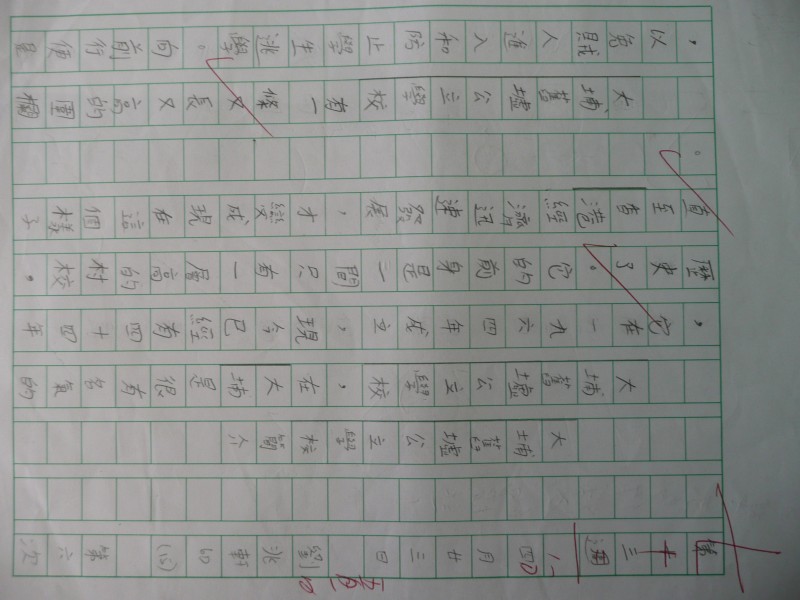 第十三週 四月廿三日 劉兆軒 4D (15) 第六次
大埔舊墟公立學校簡介
大埔舊墟公立學校，在大埔是很有名氣的
，它在一九六四年成立，現今已經有四十四年
歷史了。它的前身是一間只有一層高的村校，
直至香港經濟迅速發展，才變成現在這個樣子
。
大埔舊墟公立學校有一條又長又高的圍欄
，以免賊人進入和防止學生逃學。向前行便是